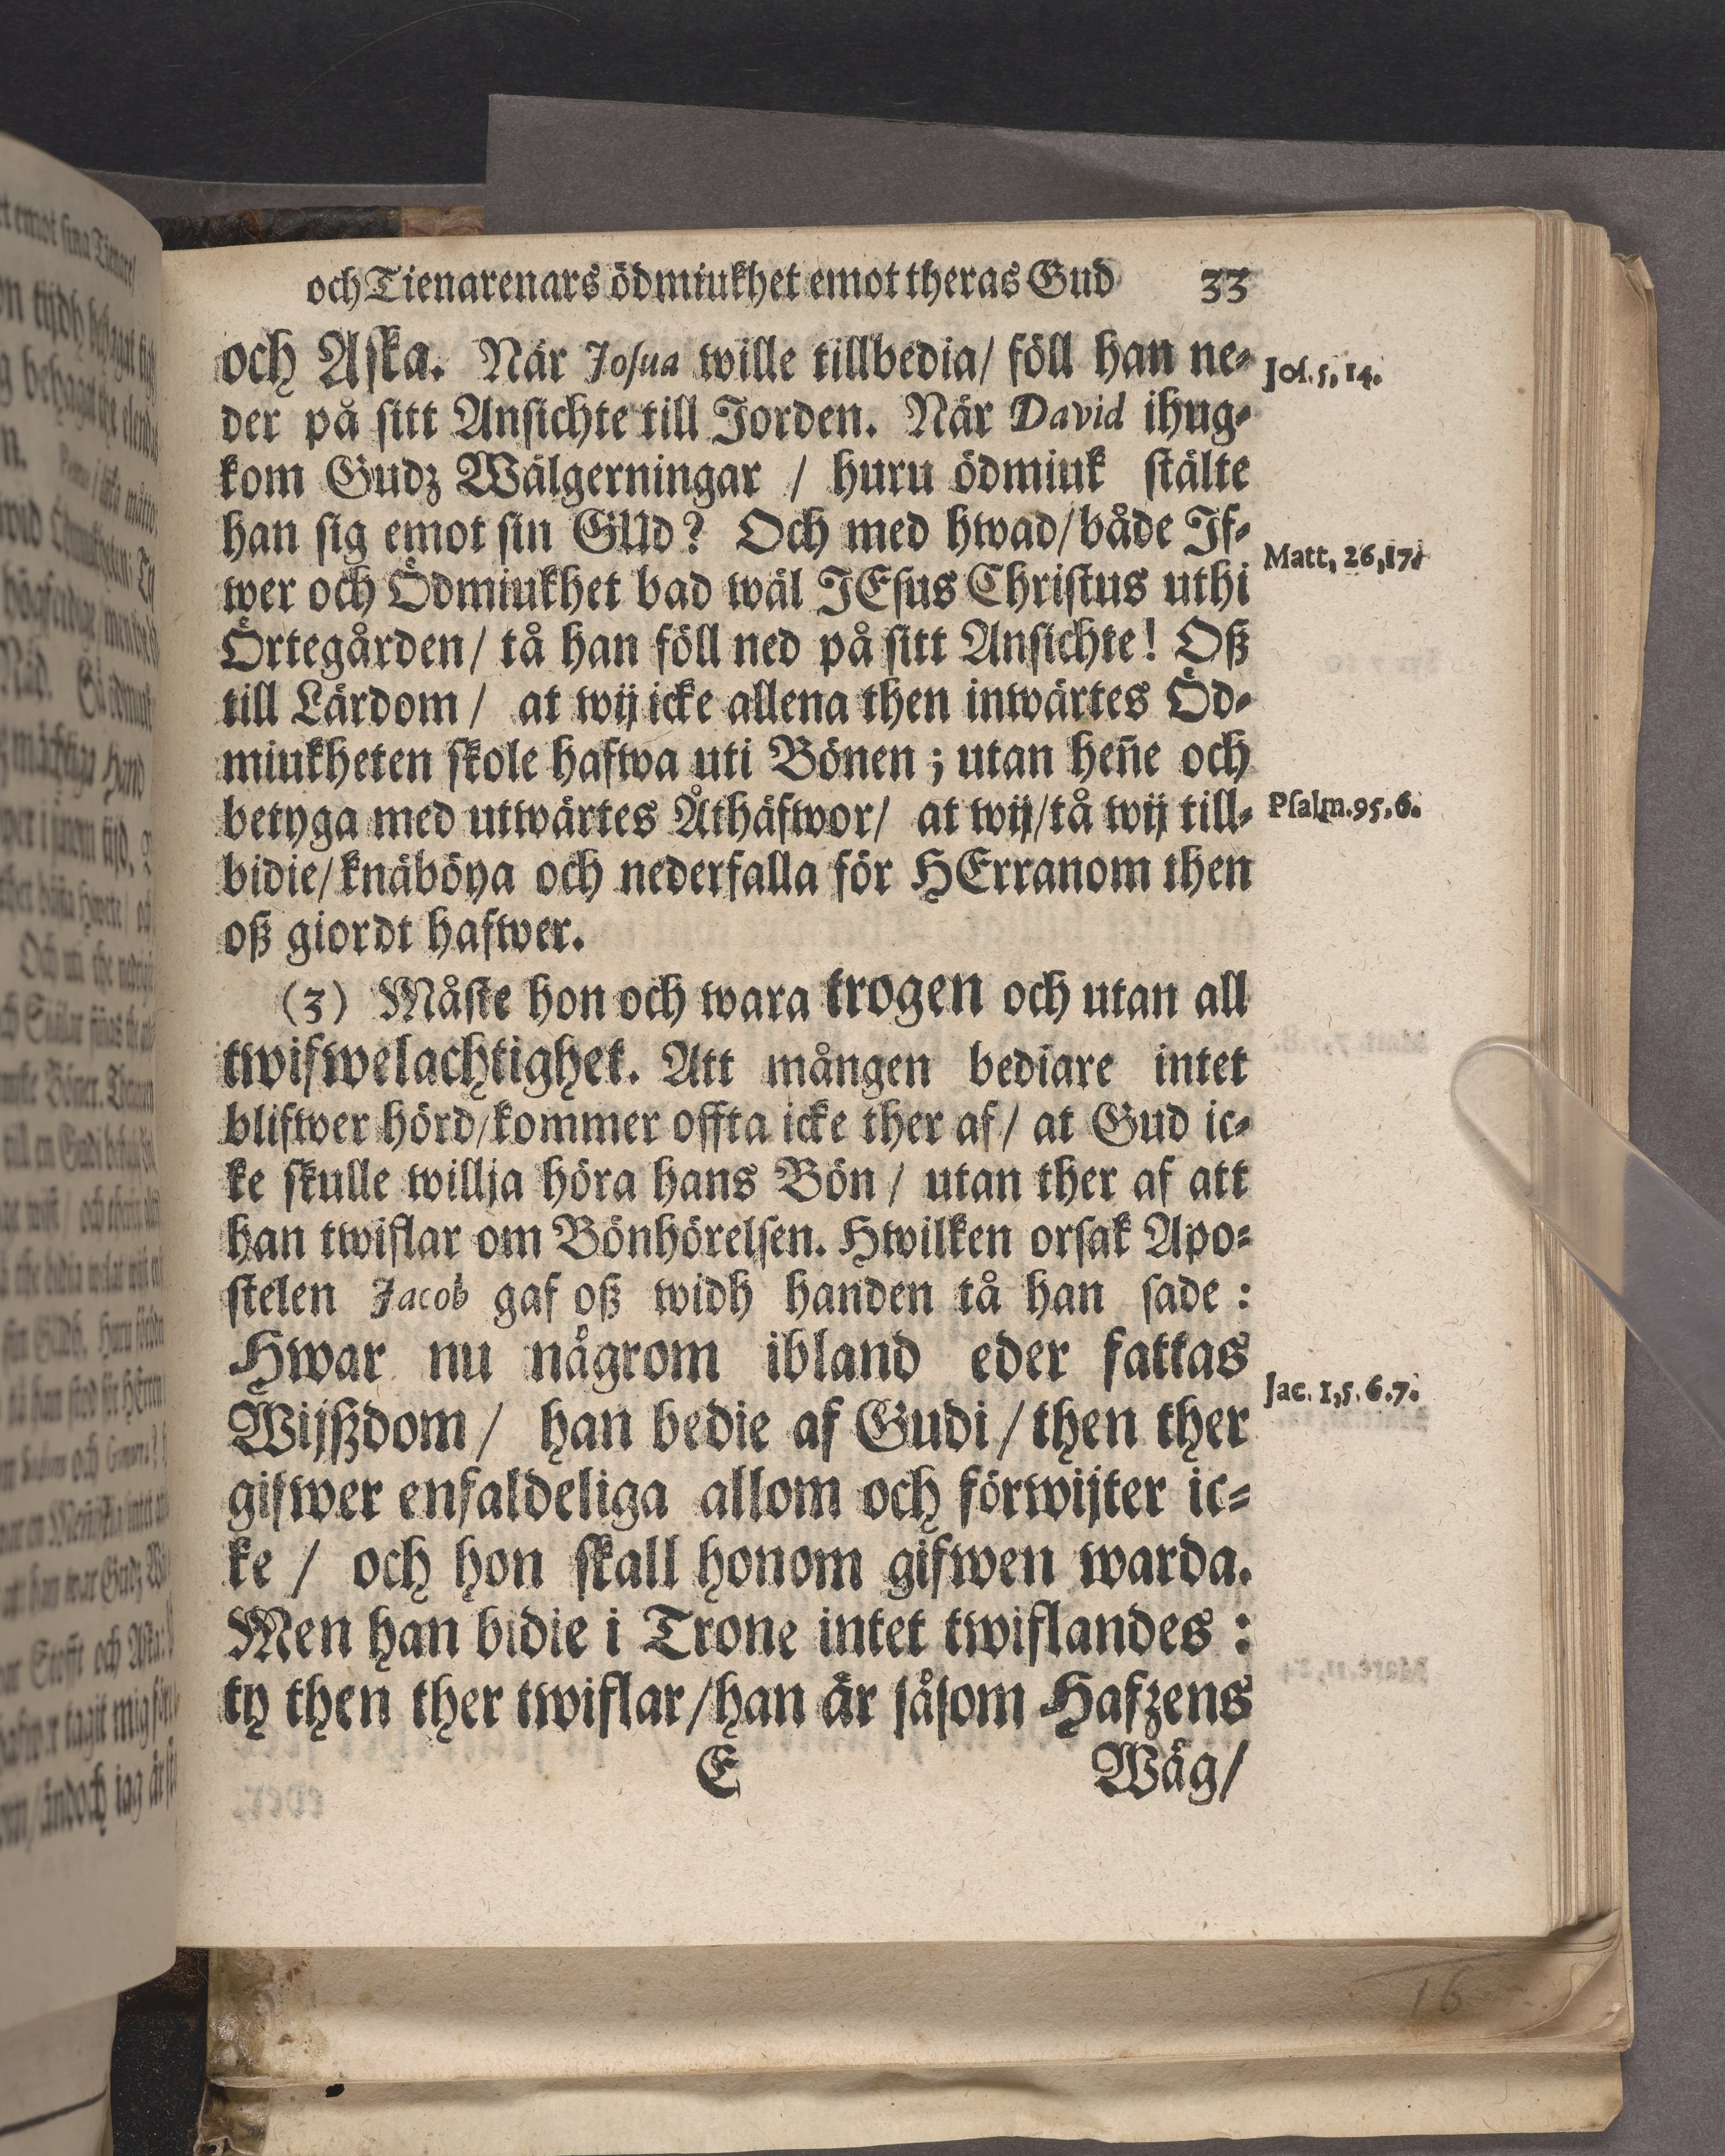 och Tienarenars ödmiukhet emot theras Gud 33
och Aska. När Josua wille tillbedia/ föll han ne-
Jos. 5, 14.
der på sitt Ansichte till Jorden. När David ihug-
kom Gudz Wälgerningar / huru ödmiuk stälte
han sig emot sin GUd? Och med hwad/både If-
Matt, 26,17.
wer och Ödmiukhet bad wäl JEsus Christus uthi
Örtegården/ tå han föll ned på sitt Ansichte! Oß
till Lärdom / at wij icke allena then inwärtes Öd-
miukheten skole hafwa uti Bönen ; utan heñe och
betyga med utwärtes Åthäfwor/ at wij/tå wij till-
Psalm.95.6.
bidie/knäböya och nederfalla för HErranom then
oß giordt hafwer.
(3) Måste hon och wara trogen och utan all
twifwelachtighet. Att mången bediare intet
blifwer hörd/kommer offta icke ther af/ at Gud ic-
ke skulle willja höra hans Bön / utan ther af att
han twiflar om Bönhörelsen. Hwilken orsak Apo-
stelen Jacob gaf oß widh handen tå han sade :
Hwar nu någrom ibland eder fattas
Jac. 1,5.6.7.
Wijßdom/ han bedie af Gudi/then ther
gifwer enfaldeliga allom och förwijter ic-
ke / och hon skall honom gifwen warda.
Men han bidie i Trone intet twiflandes :
ty then ther twiflar/han är såsom Hafzens
E Wäg/
16